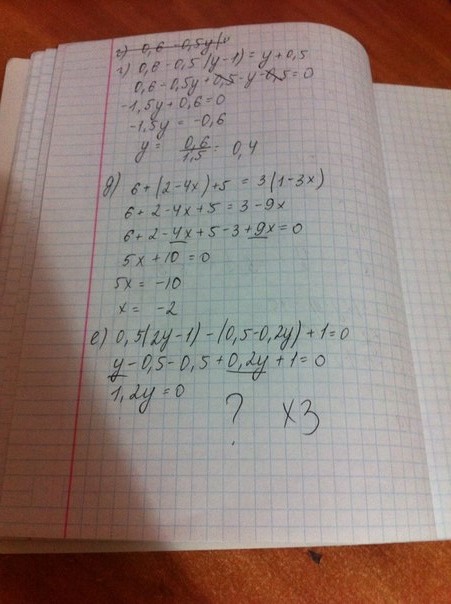 г) 0,6 - 0,5y(
г) 0,6 - 0,5(y-1) = y + 0,5
0,6 - 0,5y + 0,5 - y - 0,5 = 0
-1,5y + 0,6 = 0
-1,5y = -0,6
y = 0,6/1,5 = 0,4
д) 6 + (2-4x) + 5 = 3(1-3x)
6 + 2 - 4x + 5 = 3 - 9x
6 + 2 - 4x + 5 - 3 + 9x = 0
5x + 10 = 0
5x = -10
x = -2
е) 0,5(2y-1) - (0,5-0,2y) + 1 = 0
y - 0,5 - 0,5 + 0,2y + 1 = 0
1,2y = 0
? х3